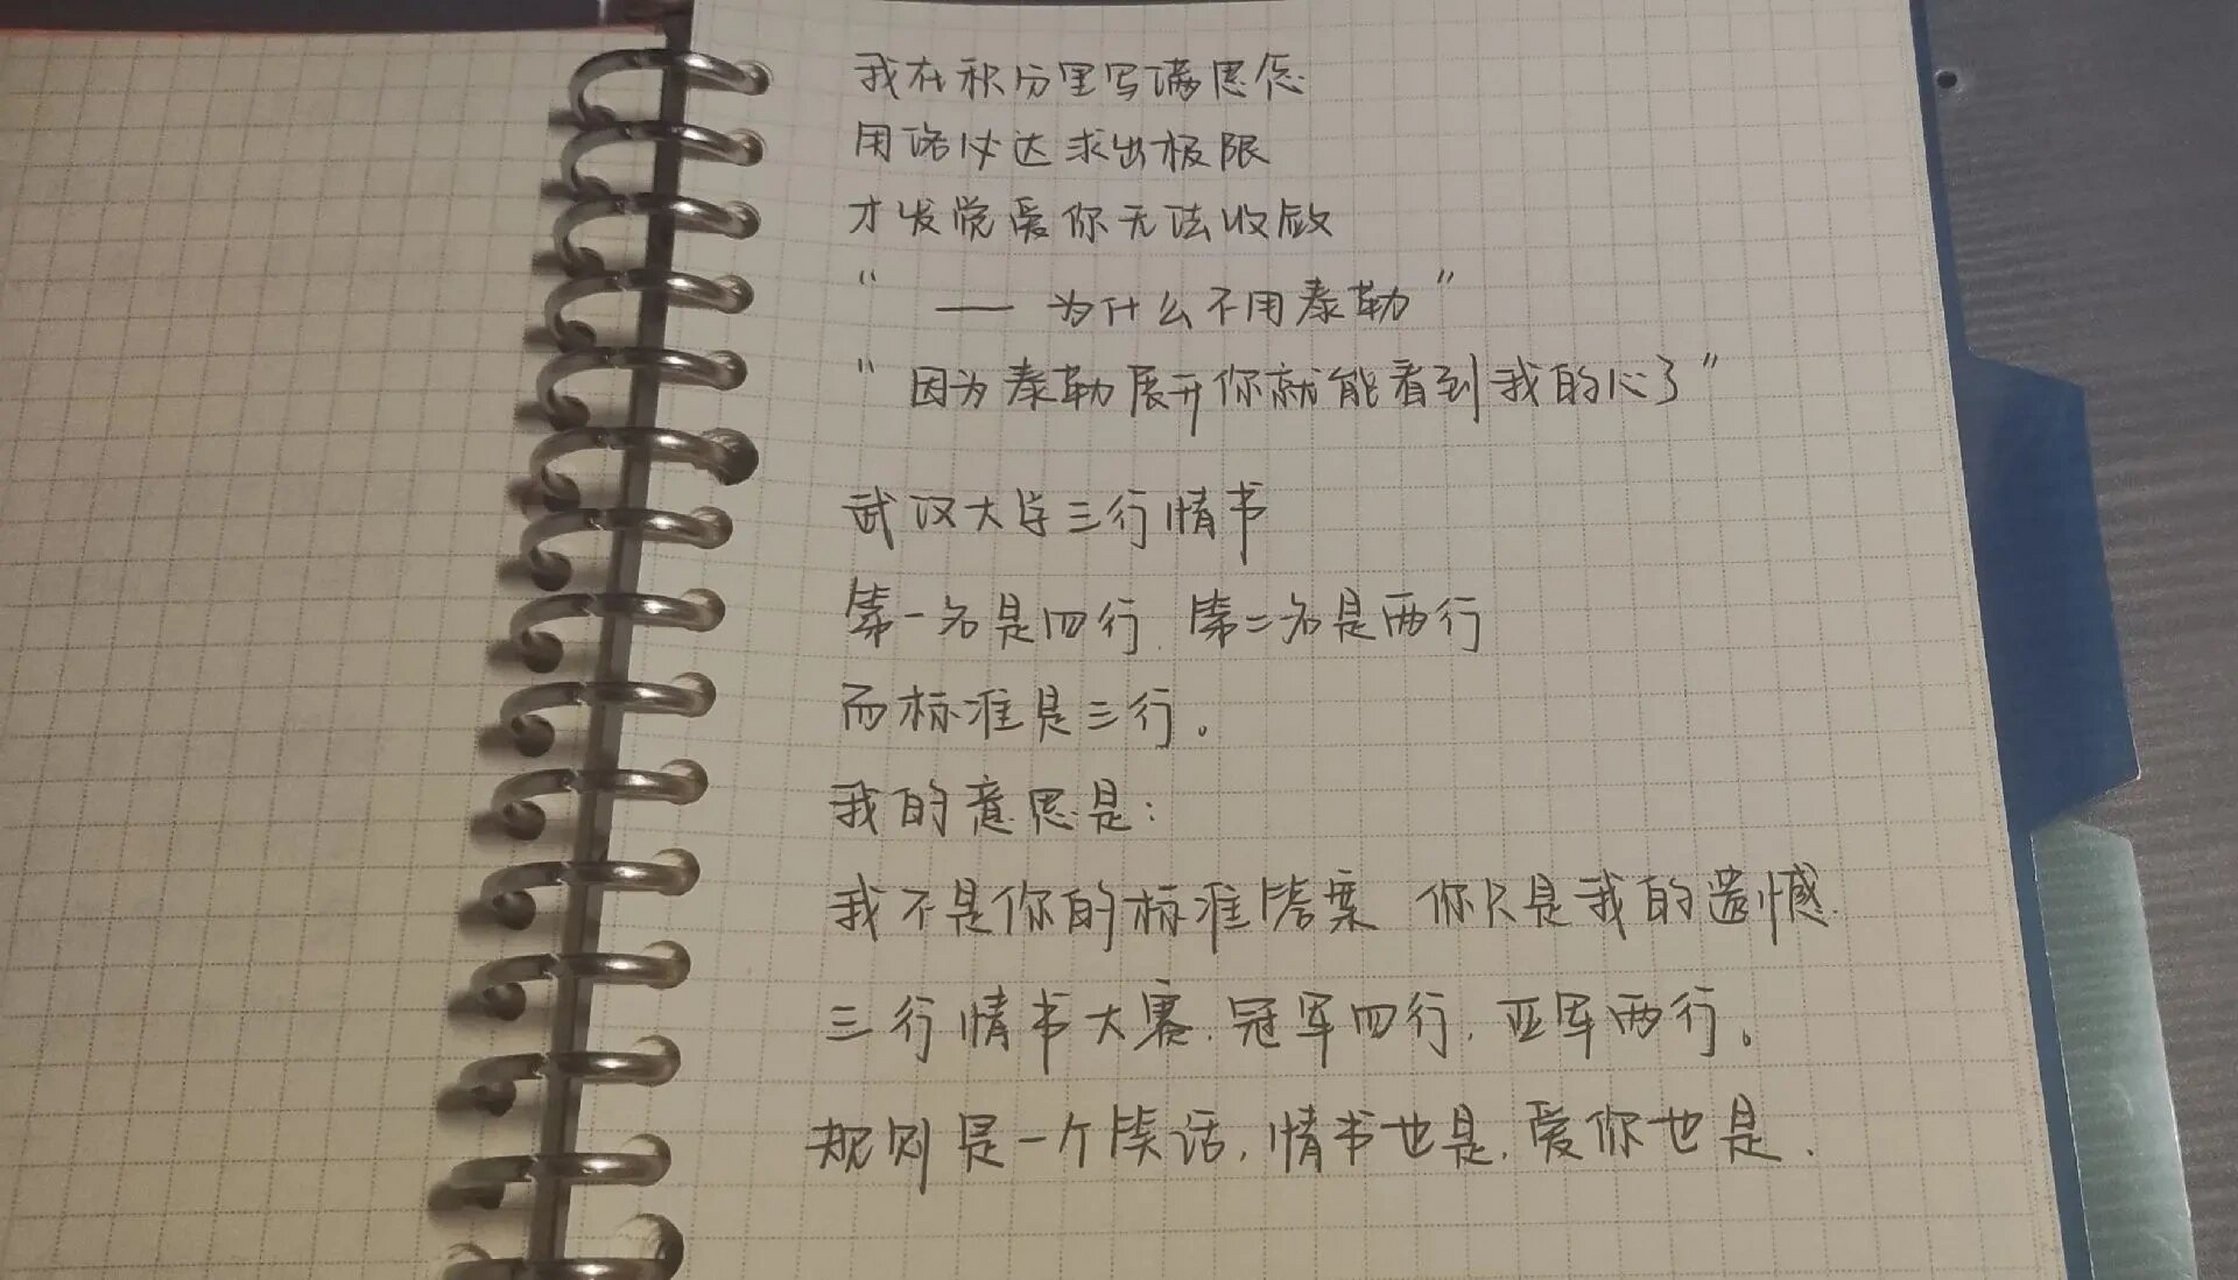 我在积分里写满思念
用洛必达求出极限
才发觉爱你无法收敛
“ —— 为什么不用泰勒”
“因为泰勒展开你就能看到我的心了”
武汉大学三行情书
第一名是四行.第二名是两行
而标准是三行。
我的意思是:
我不是你的标准答案 你只是我的遗憾.
三行情书大赛.冠军四行.亚军两行。
规则是一个笑话,情书也是.爱你也是.